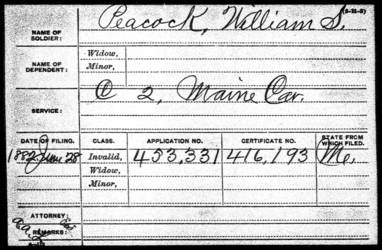 Peacock, William S. (3-21-3)
NAME OF SOLDIER:
NAME OF DEPENDENT:
Widow,
Minor,
SERVICE: C 2, Maine Cav.
DATE OF FILING. CLASS. APPLICATION NO. CERTIFICATE NO. STATE FROM WHICH FILED.
1882 June 28 Invalid, 453,331 416,193 Me.
Widow,
Minor,
ATTORNEY:
REMARKS: